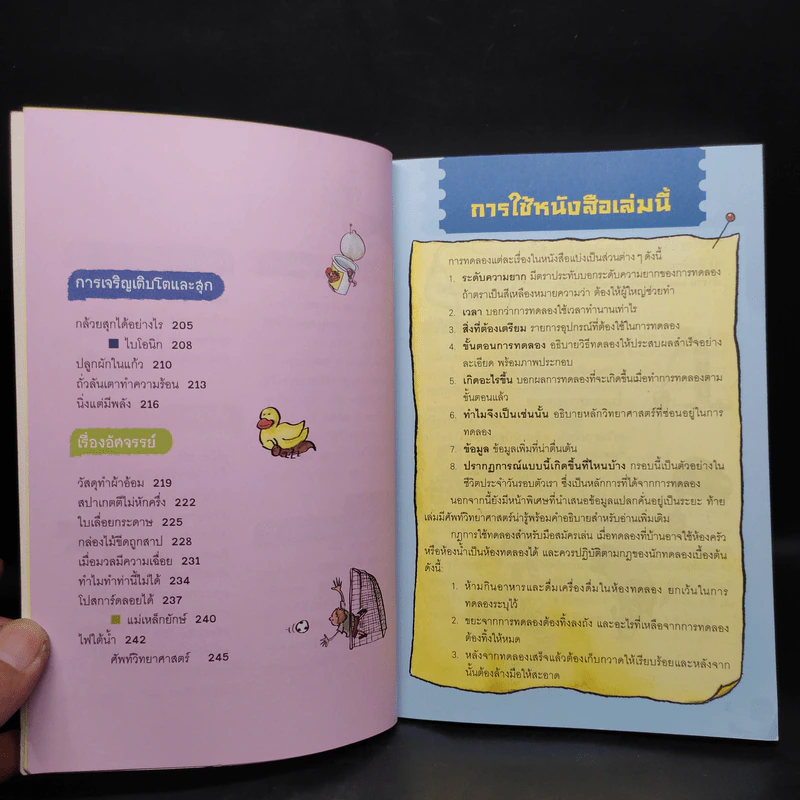 การเจริญเติบโตและสุก
กล้วยสุกได้อย่างไร 205
ไบโอนิก 208
ปลูกผักในแก้ว 210
ถั่วลันเตาทำความร้อน 213
นิ่งแต่มีพลัง 216
เรื่องอัศจรรย์
วัสดุทำผ้าอ้อม 219
สปาเกตตีไม่หักครึ่ง 222
ใบเลื่อยกระดาษ 225
กล่องไม้ขีดถูกสาป 228
เมื่อมวลมีความเฉื่อย 231
ทำไมทำท่านี้ไม่ได้ 234
โปสการ์ดลอยได้ 237
แม่เหล็กยักษ์ 240
ไฟใต้น้ำ 242
ศัพท์วิทยาศาสตร์ 245
การใช้หนังสือเล่มนี้
การทดลองแต่ละเรื่องในหนังสือแบ่งเป็นส่วนต่าง ๆ ดังนี้
1. ระดับความยาก มีตราประทับบอกระดับความยากของการทดลอง
ถ้าตราเป็นสีเหลืองหมายความว่า ต้องให้ผู้ใหญ่ช่วยทำ
2. เวลา บอกว่าการทดลองใช้เวลาทำนานเท่าไร
3. สิ่งที่ต้องเตรียม รายการอุปกรณ์ที่ต้องใช้ในการทดลอง
4. ขั้นตอนการทดลอง อธิบายวิธีทดลองให้ประสบผลสำเร็จอย่าง
ละเอียด พร้อมภาพประกอบ
5. เกิดอะไรขึ้น บอกผลการทดลองที่จะเกิดขึ้นเมื่อทำการทดลองตาม
ขั้นตอนแล้ว
6. ทำไมจึงเป็นเช่นนั้น อธิบายหลักวิทยาศาสตร์ที่ซ่อนอยู่ในการ
ทดลอง
7. ข้อมูล ข้อมูลเพิ่มที่น่าตื่นเต้น
8. ปรากฏการณ์แบบนี้เกิดขึ้นที่ไหนบ้าง กรอบนี้เป็นตัวอย่างใน
ชีวิตประจำวันรอบตัวเรา ซึ่งเป็นหลักการที่ได้จากการทดลอง
นอกจากนี้ยังมีหน้าพิเศษที่นำเสนอข้อมูลแปลกคั่นอยู่เป็นระยะ ท้าย
เล่มมีศัพท์วิทยาศาสตร์น่ารู้พร้อมคำอธิบายสำหรับอ่านเพิ่มเติม
กฎการใช้ทดลองสำหรับมือสมัครเล่น เมื่อทดลองที่บ้านอาจใช้ห้องครัว
หรือห้องน้ำเป็นห้องทดลองได้ และควรปฏิบัติตามกฎของนักทดลองเบื้องต้น
ดังนี้
1. ห้ามกินอาหารและดื่มเครื่องดื่มในห้องทดลอง ยกเว้นในการ
ทดลองระบุไว้
2. ขยะจากการทดลองต้องทิ้งลงถัง และอะไรที่เหลือจากการทดลอง
ต้องทิ้งให้หมด
3. หลังจากทดลองเสร็จแล้วต้องเก็บกวาดให้เรียบร้อยและหลังจาก
นั้นต้องล้างมือให้สะอาด